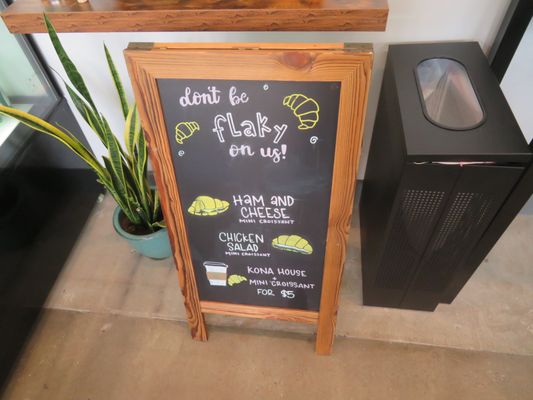 don't be
flaky
on us!
HAM AND
CHEESE
MINI CROISSANT
CHICKEN
SALAD
MINI CROISSANT
KONA HOUSE
+
MINI CROISSANT
FOR $5